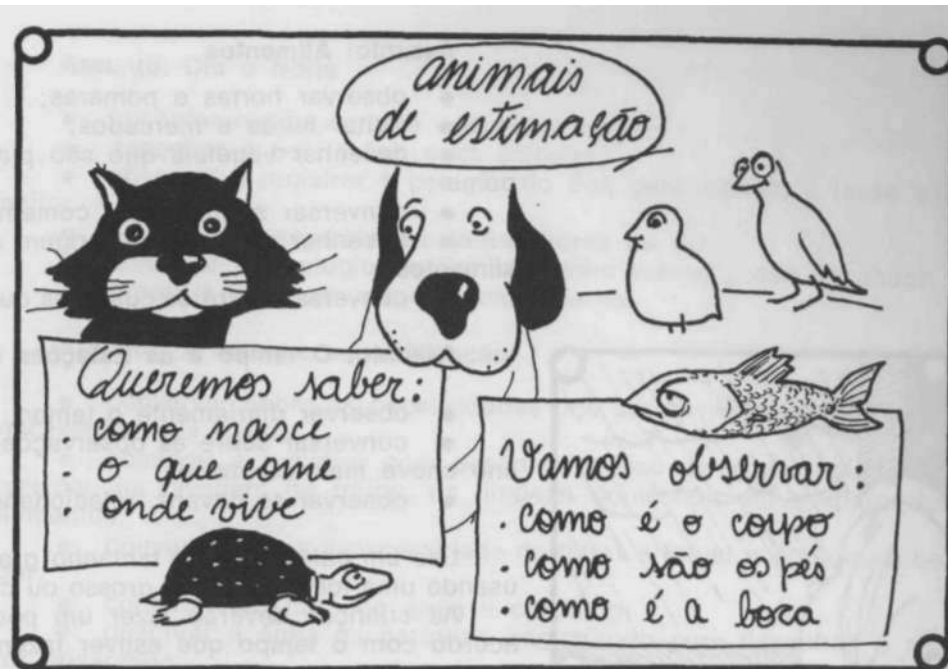 animais
de estimação
Queremos saber:
. como nasce
. o que come
. onde vive
Vamos observar:
. como é o corpo
. como são os pés
. como é a boca